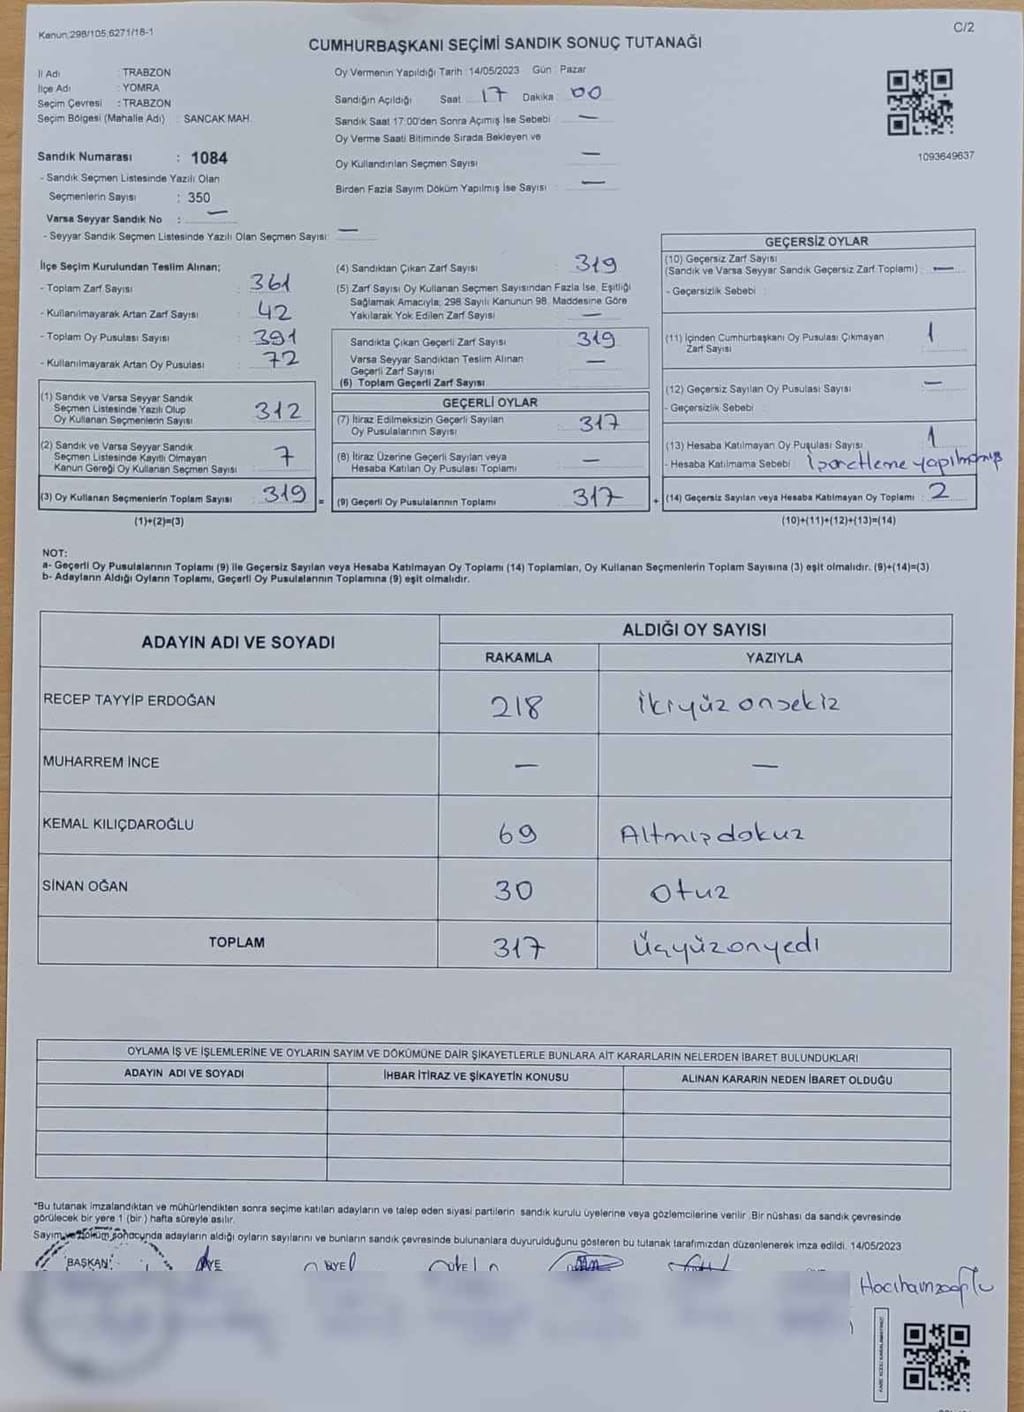 Kanun,298/105,6271/18-1
C/2
CUMHURBAŞKANI SEÇİMİ SANDIK SONUÇ TUTANAĞI
İl Adı : TRABZON
İlçe Adı : YOMRA
Seçim Çevresi : TRABZON
Seçim Bölgesi (Mahalle Adı) : SANCAK MAH.
Oy Vermenin Yapıldığı Tarih :14/05/2023 Gün : Pazar
Sandığın Açıldığı Saat 17 Dakika 00
Sandık Saat 17:00'den Sonra Açımış İse Sebebi : —
Oy Verme Saati Bitiminde Sırada Bekleyen ve
Oy Kullandırılan Seçmen Sayısı : —
Birden Fazla Sayım Döküm Yapılmış İse Sayısı : —
1093649637
Sandık Numarası : 1084
- Sandık Seçmen Listesinde Yazılı Olan
Seçmenlerin Sayısı : 350
Varsa Seyyar Sandık No : —
- Seyyar Sandık Seçmen Listesinde Yazılı Olan Seçmen Sayısı: —
İlçe Seçim Kurulundan Teslim Alınan;
- Toplam Zarf Sayısı : 361
- Kullanılmayarak Artan Zarf Sayısı : 42
- Toplam Oy Pusulası Sayısı : 391
- Kullanılmayarak Artan Oy Pusulası : 72
(1) Sandık ve Varsa Seyyar Sandık
Seçmen Listesinde Yazılı Olup
Oy Kullanan Seçmenlerin Sayısı : 312
(2) Sandık ve Varsa Seyyar Sandık
Seçmen Listesinde Kayıtlı Olmayan
Kanun Gereği Oy Kullanan Seçmen Sayısı : 7
(3) Oy Kullanan Seçmenlerin Toplam Sayısı : 319 =
(1)+(2)=(3)
(4) Sandıktan Çıkan Zarf Sayısı : 319
(5) Zarf Sayısı Oy Kullanan Seçmen Sayısından Fazla İse, Eşitliği
Sağlamak Amacıyla; 298 Sayılı Kanunun 98. Maddesine Göre
Yakılarak Yok Edilen Zarf Sayısı : —
Sandıkta Çıkan Geçerli Zarf Sayısı : 319
Varsa Seyyar Sandıktan Teslim Alınan
Geçerli Zarf Sayısı : —
(6) Toplam Geçerli Zarf Sayısı
GEÇERLİ OYLAR
(7) İtiraz Edilmeksizin Geçerli Sayılan
Oy Pusulalarının Sayısı : 317
(8) İtiraz Üzerine Geçerli Sayılan veya
Hesaba Katılan Oy Pusulası Toplamı : —
(9) Geçerli Oy Pusulalarının Toplamı : 317 +
GEÇERSİZ OYLAR
(10) Geçersiz Zarf Sayısı
(Sandık ve Varsa Seyyar Sandık Geçersiz Zarf Toplamı) : —
- Geçersizlik Sebebi :
(11) İçinden Cumhurbaşkanı Oy Pusulası Çıkmayan
Zarf Sayısı : 1
(12) Geçersiz Sayılan Oy Pusulası Sayısı : —
- Geçersizlik Sebebi :
(13) Hesaba Katılmayan Oy Puşulası Sayısı : 1
- Hesaba Katılmama Sebebi : İşaretleme yapılmamış
(14) Geçersiz Sayılan veya Hesaba Katılmayan Oy Toplamı : 2
(10)+(11)+(12)+(13)=(14)
NOT:
a- Geçerli Oy Pusulalarının Toplamı (9) ile Geçersiz Sayılan veya Hesaba Katılmayan Oy Toplamı (14) Toplamları, Oy Kullanan Seçmenlerin Toplam Sayısına (3) eşit olmalıdır. (9)+(14)=(3)
b- Adayların Aldığı Oyların Toplamı, Geçerli Oy Pusulalarının Toplamına (9) eşit olmalıdır.
ADAYIN ADI VE SOYADI
ALDIĞI OY SAYISI
RAKAMLA YAZIYLA
RECEP TAYYİP ERDOĞAN 218 ikiyüz onsekiz
MUHARREM İNCE — —
KEMAL KILIÇDAROĞLU 69 Altmışdokuz
SİNAN OĞAN 30 otuz
TOPLAM 317 Üçyüzonyedi
OYLAMA İŞ VE İŞLEMLERİNE VE OYLARIN SAYIM VE DÖKÜMÜNE DAİR ŞİKAYETLERLE BUNLARA AİT KARARLARIN NELERDEN İBARET BULUNDUKLARI
ADAYIN ADI VE SOYADI İHBAR İTİRAZ VE ŞİKAYETİN KONUSU ALINAN KARARIN NEDEN İBARET OLDUĞU
*Bu tutanak imzalandıktan ve mühürlendikten sonra seçime katılan adayların ve talep eden siyasi partilerin sandık kurulu üyelerine veya gözlemcilerine verilir .Bir nüshası da sandık çevresinde
görülecek bir yere 1 (bir ) hafta süreyle asılır.
Sayım ve döküm sonucunda adayların aldığı oyların sayılarını ve bunların sandık çevresinde bulunanlara duyurulduğunu gösteren bu tutanak tarafımızdan düzenlenerek imza edildi. 14/05/2023
BAŞKAN ÜYE ÜYE ÜYE
Hacıhamzaoğlu